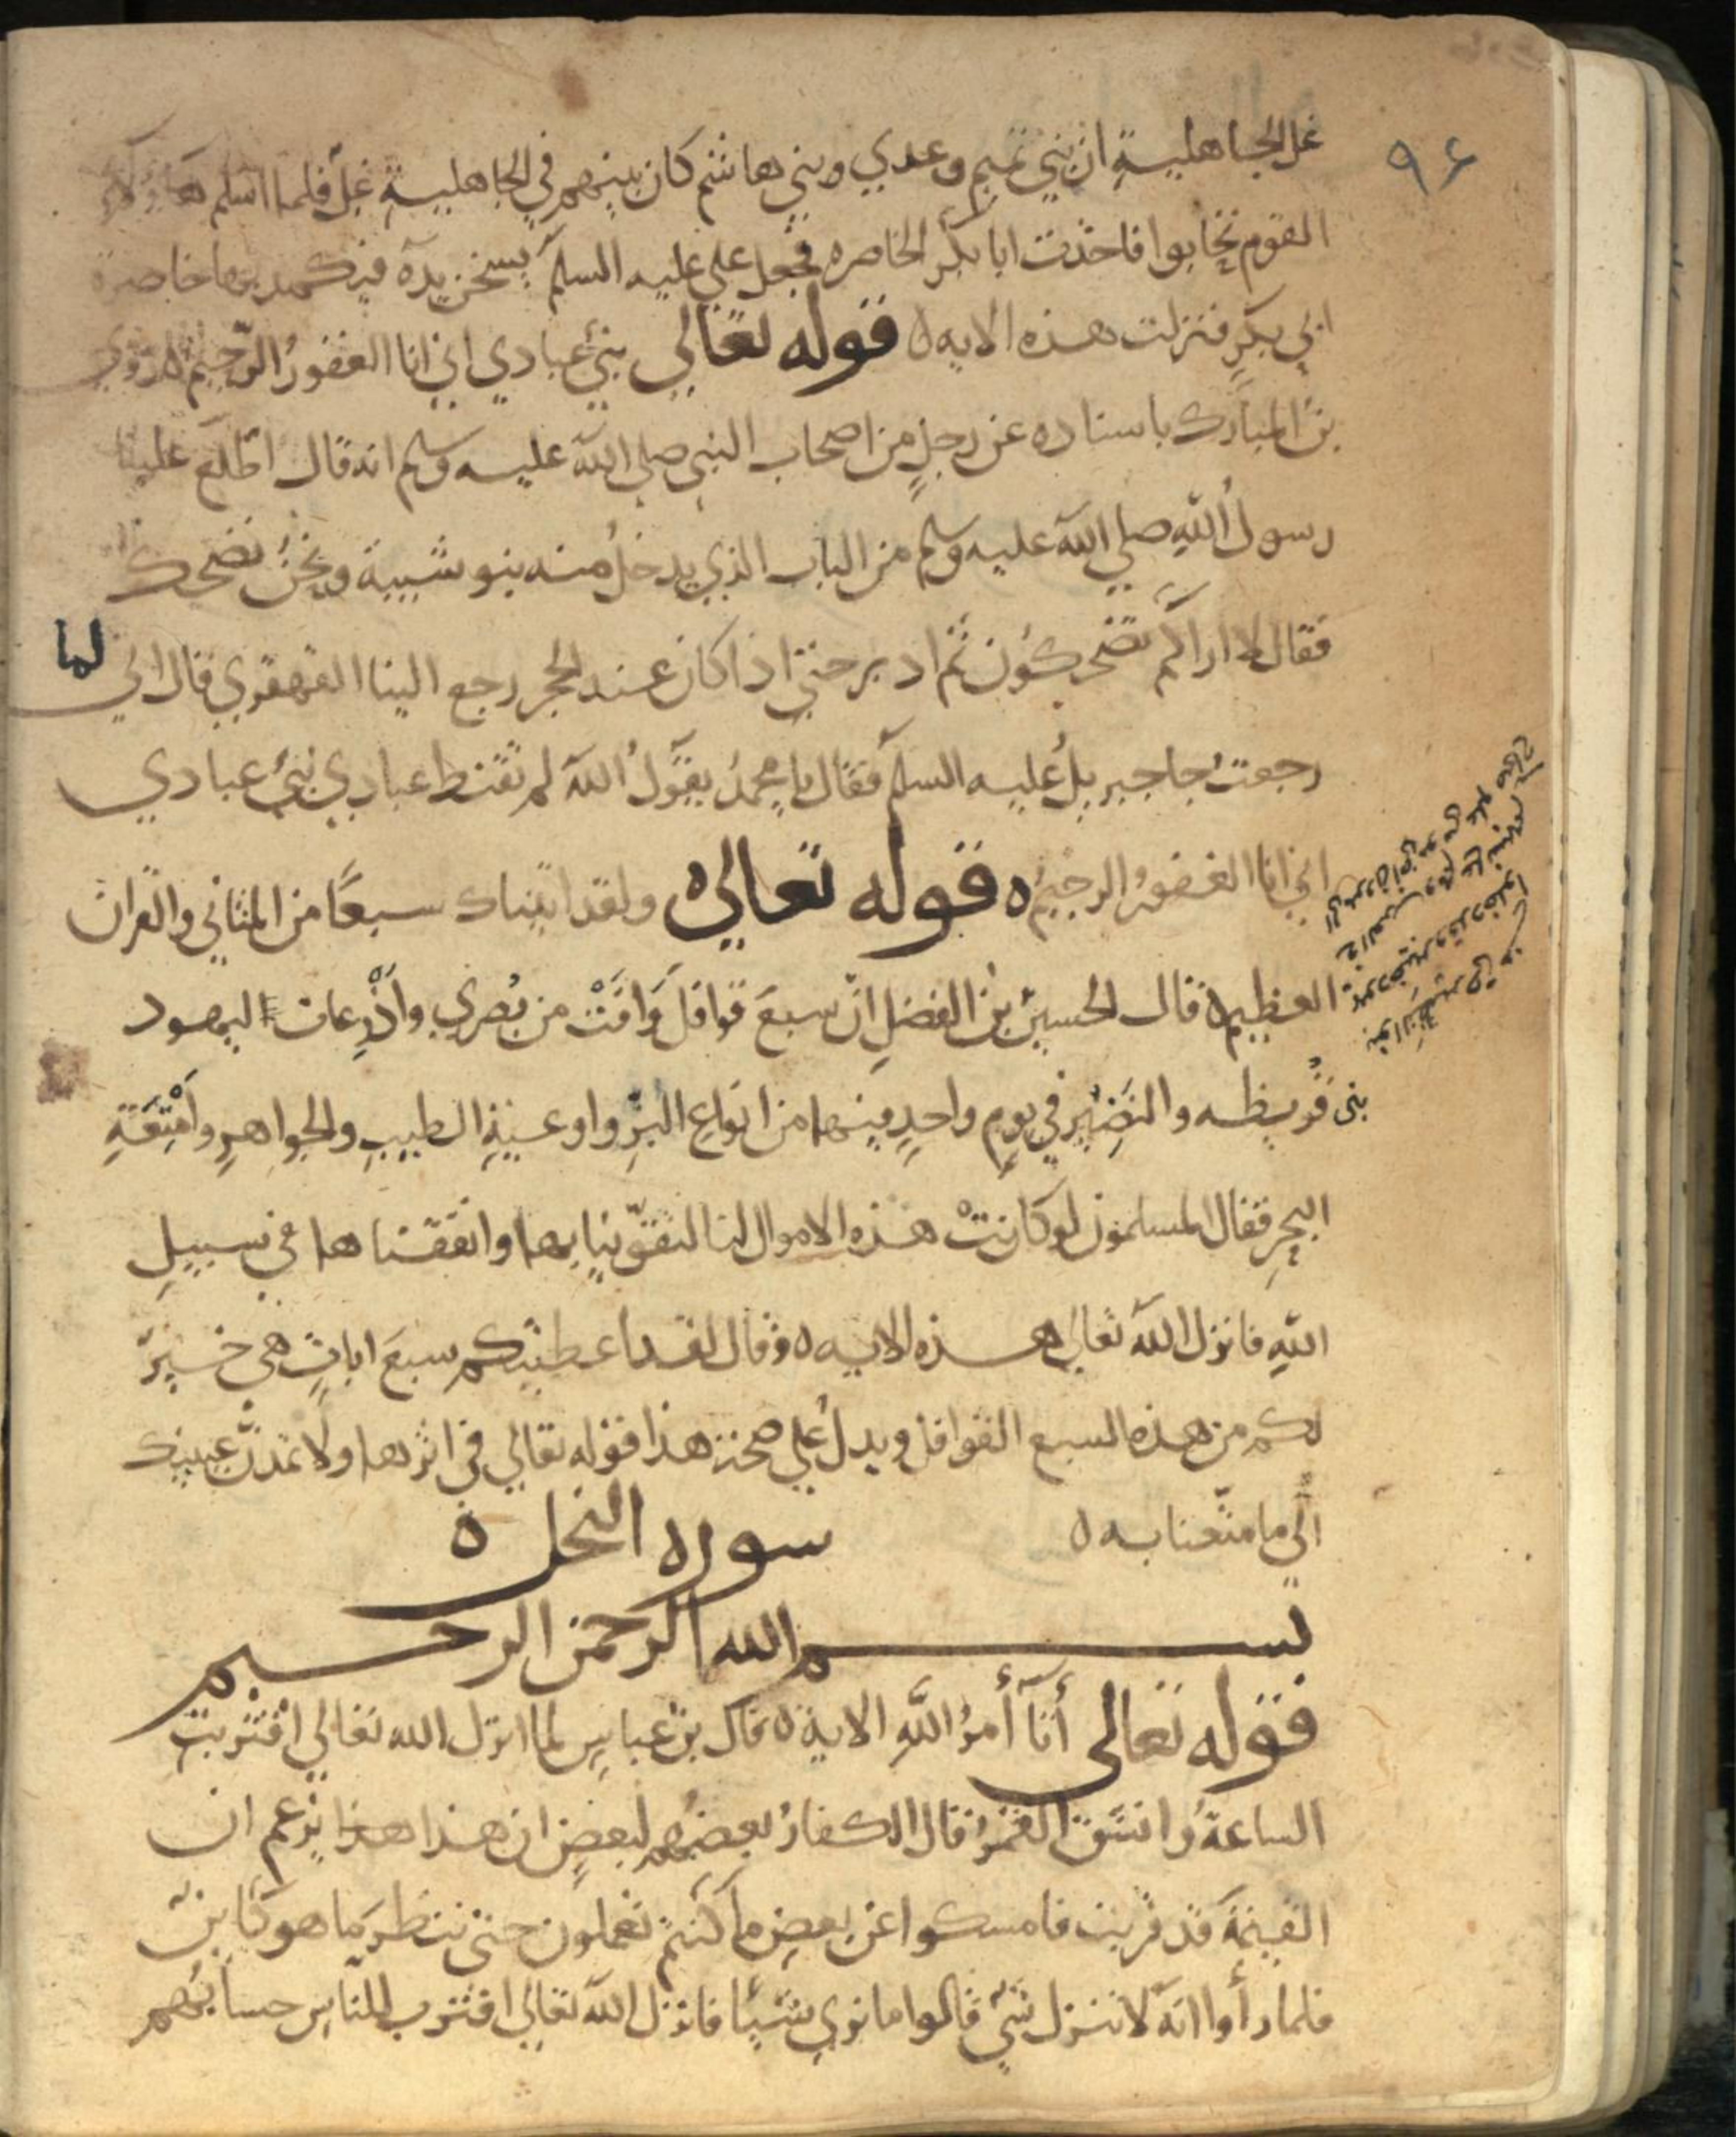 ٩٤
غل الجاهلية ان بني تميم وعدي وبني هاشم كان بينهم في الجاهلية غل فلما اسلم هاولاء
القوم تحابوا فاخذت ابا بكر الخاصره فجعل علي عليه السلم يسخن يده فيكمد بها خاصرة
ابي بكر فنزلت هذه الايه ه قوله تعالى نبئ عبادي اني انا الغفور الرحيم ه روي
بن المبارك باسناده عن رجل من اصحاب النبي صلى الله عليه وسلم انه قال اطلع علينا
رسول الله صلى الله عليه وسلم من الباب الذي يدخل منه بنو شيبة ونحن نضحك
فقال لا اراكم تضحكون ثم ادبر حتى اذا كان عند الحجر رجع الينا القهقري قال اني لما
رجعت جا جبريل عليه السلم فقال يا محمد يقول الله لم تقنط عبادي نبئ عبادي
اني انا الغفور الرحيم ه قوله تعالى ه ولقد اتيناك سبعا من المثاني والقران
العظيم ه قال الحسين بن الفضل ان سبع قوافل وافت من بصري واذرعات اليهود
بني قريظه والنضير في يوم واحد فيها من انواع البز واوعية الطيب والجواهر وامتعة
البحر فقال المسلمون لو كانت هذه الاموال لنا لتقوينا بها وانفقناها في سبيل
الله فانزل الله تعالى هذه الايه ه وقال لقد اعطيتكم سبع ايات هي خير
لكم من هذه السبع القوافل ويدل على صحة هذا قوله تعالى في اثرها ولا تمدن عينيك
الي ما متعنا به ه
سوره النحل ه
بسم الله الرحمن الرحيم
قوله تعالى أتا أمر الله الاية ه قال بن عباس لما انزل الله تعالى اقتربت
الساعة وانشق القمر قال الكفار بعضهم لبعض ان هذا هذا يزعم ان
القيمة قد قربت فامسكوا عن بعض ما كنتم تعملون حتى ننتظر ما هو كاين
فلما رأوا انه لا ننزل شي قالوا ما نري شيئا فانزل الله تعالى اقترب للناس حسابهم